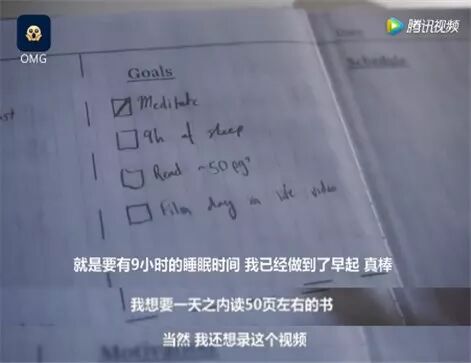 OMG
腾讯视频
Goals
Schedule
Meditate
9h of sleep
Read ~50 pgs
Film day in life video
就是要有9小时的睡眠时间 我已经做到了早起 真棒
我想要一天之内读50页左右的书
当然 我还想录这个视频